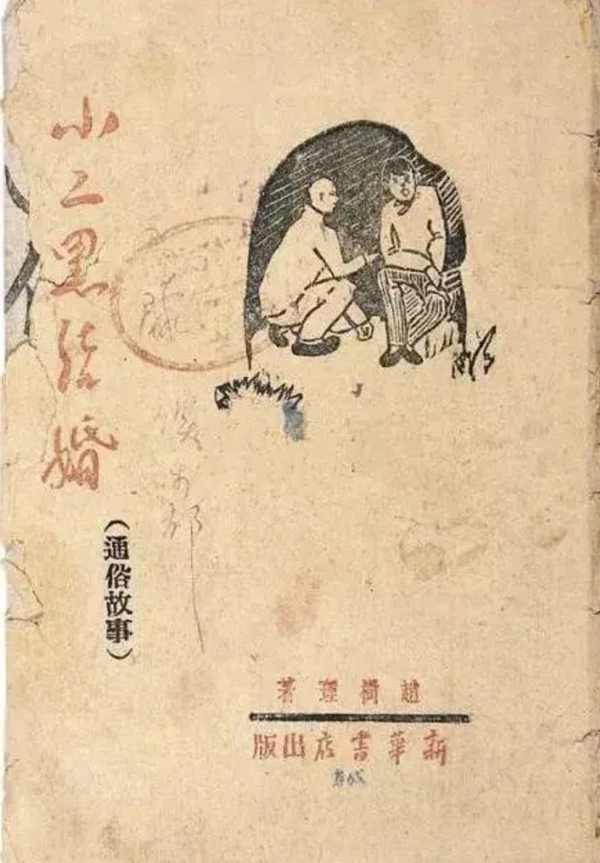 小二黑結婚
（通俗故事）
趙樹理著
新華書店出版